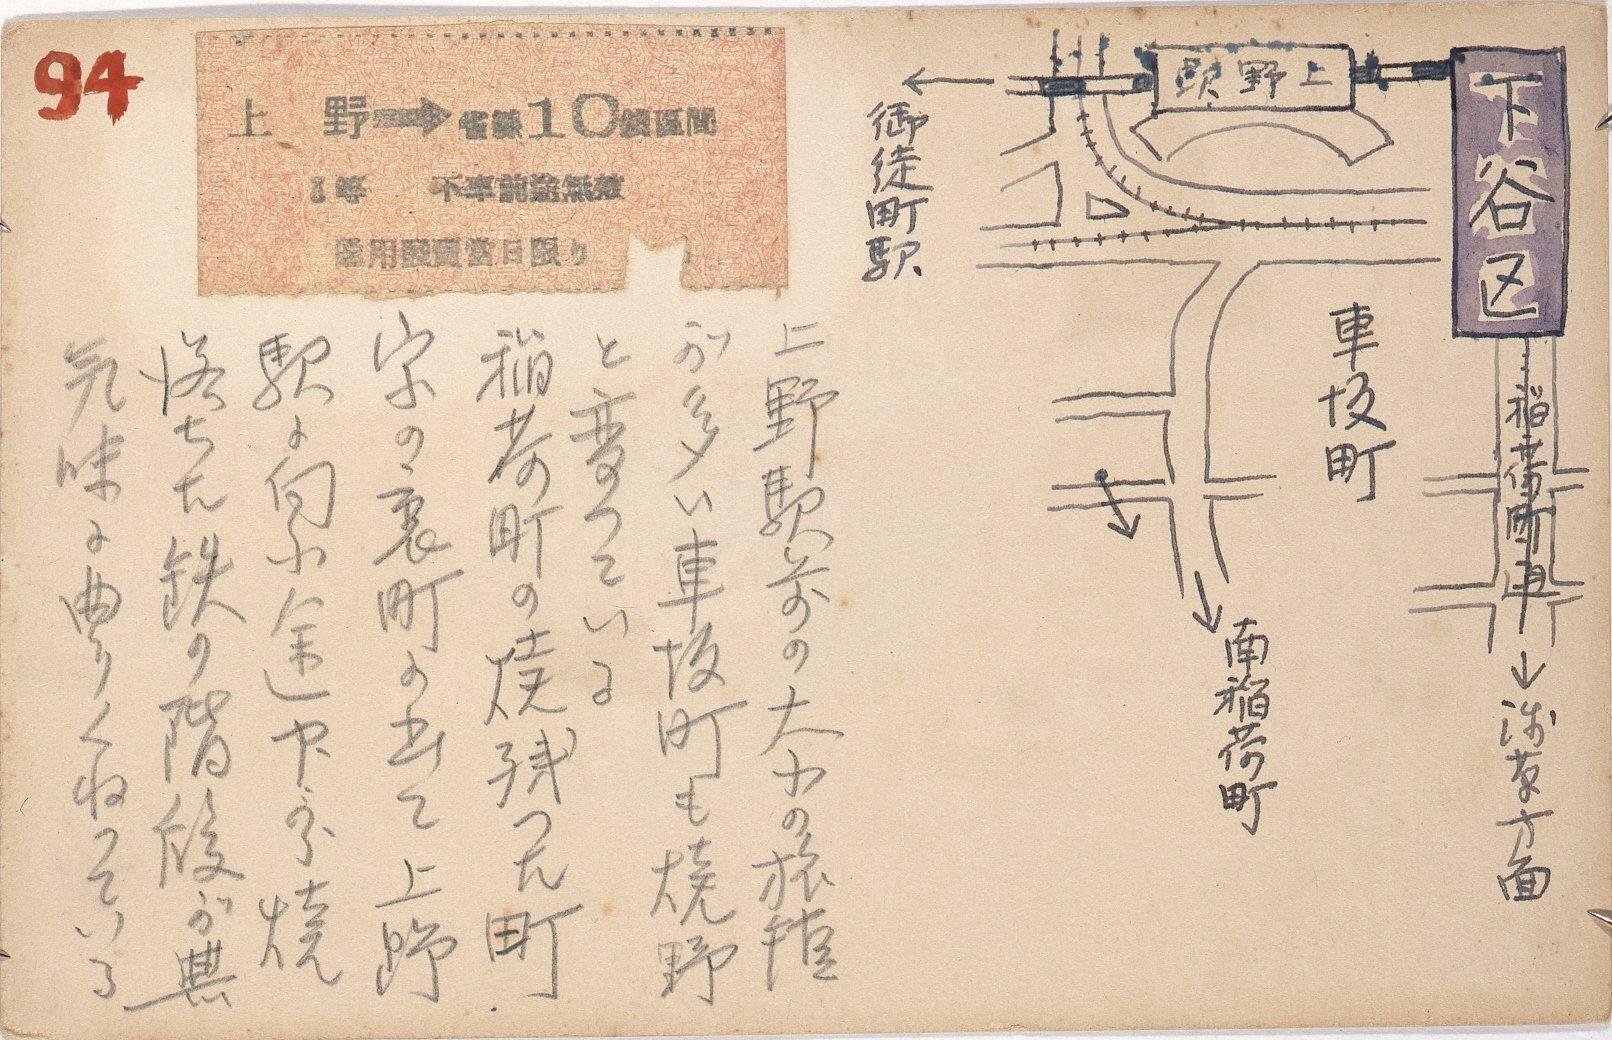 94
上野➡省線10銭区間
下車前途無効
通用発売当日限り
上野駅
御徒町駅
下谷区
車坂町
稲荷町
南稲荷町
浅草方面
上野駅前の大小の旅館
が多い車坂町も焼野
と変つている
稲荷町の焼残つた町
家の裏町に出て上野
駅に向ふ途中
焼
落ちた鉄の階段が無
気味に曲りくねつている